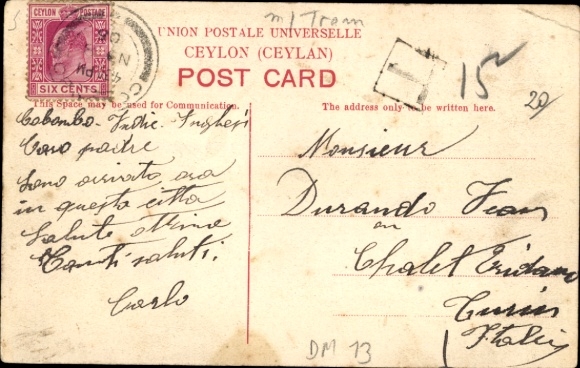 CEYLON POSTAGE
SIX CENTS
m/ Tram
UNION POSTALE UNIVERSELLE
CEYLON (CEYLAN)
POST CARD
T
15
20
This Space may be used for Communication.
The address only to be written here.
Colombo. Indie. Inglesi
Caro padre
Sono arrivato ora
in questa citta
Salute ottima
Tanti saluti.
Carlo
Monsieur
Durando Jean
au
Chalet Eridano
Turin
Italie
DM 13